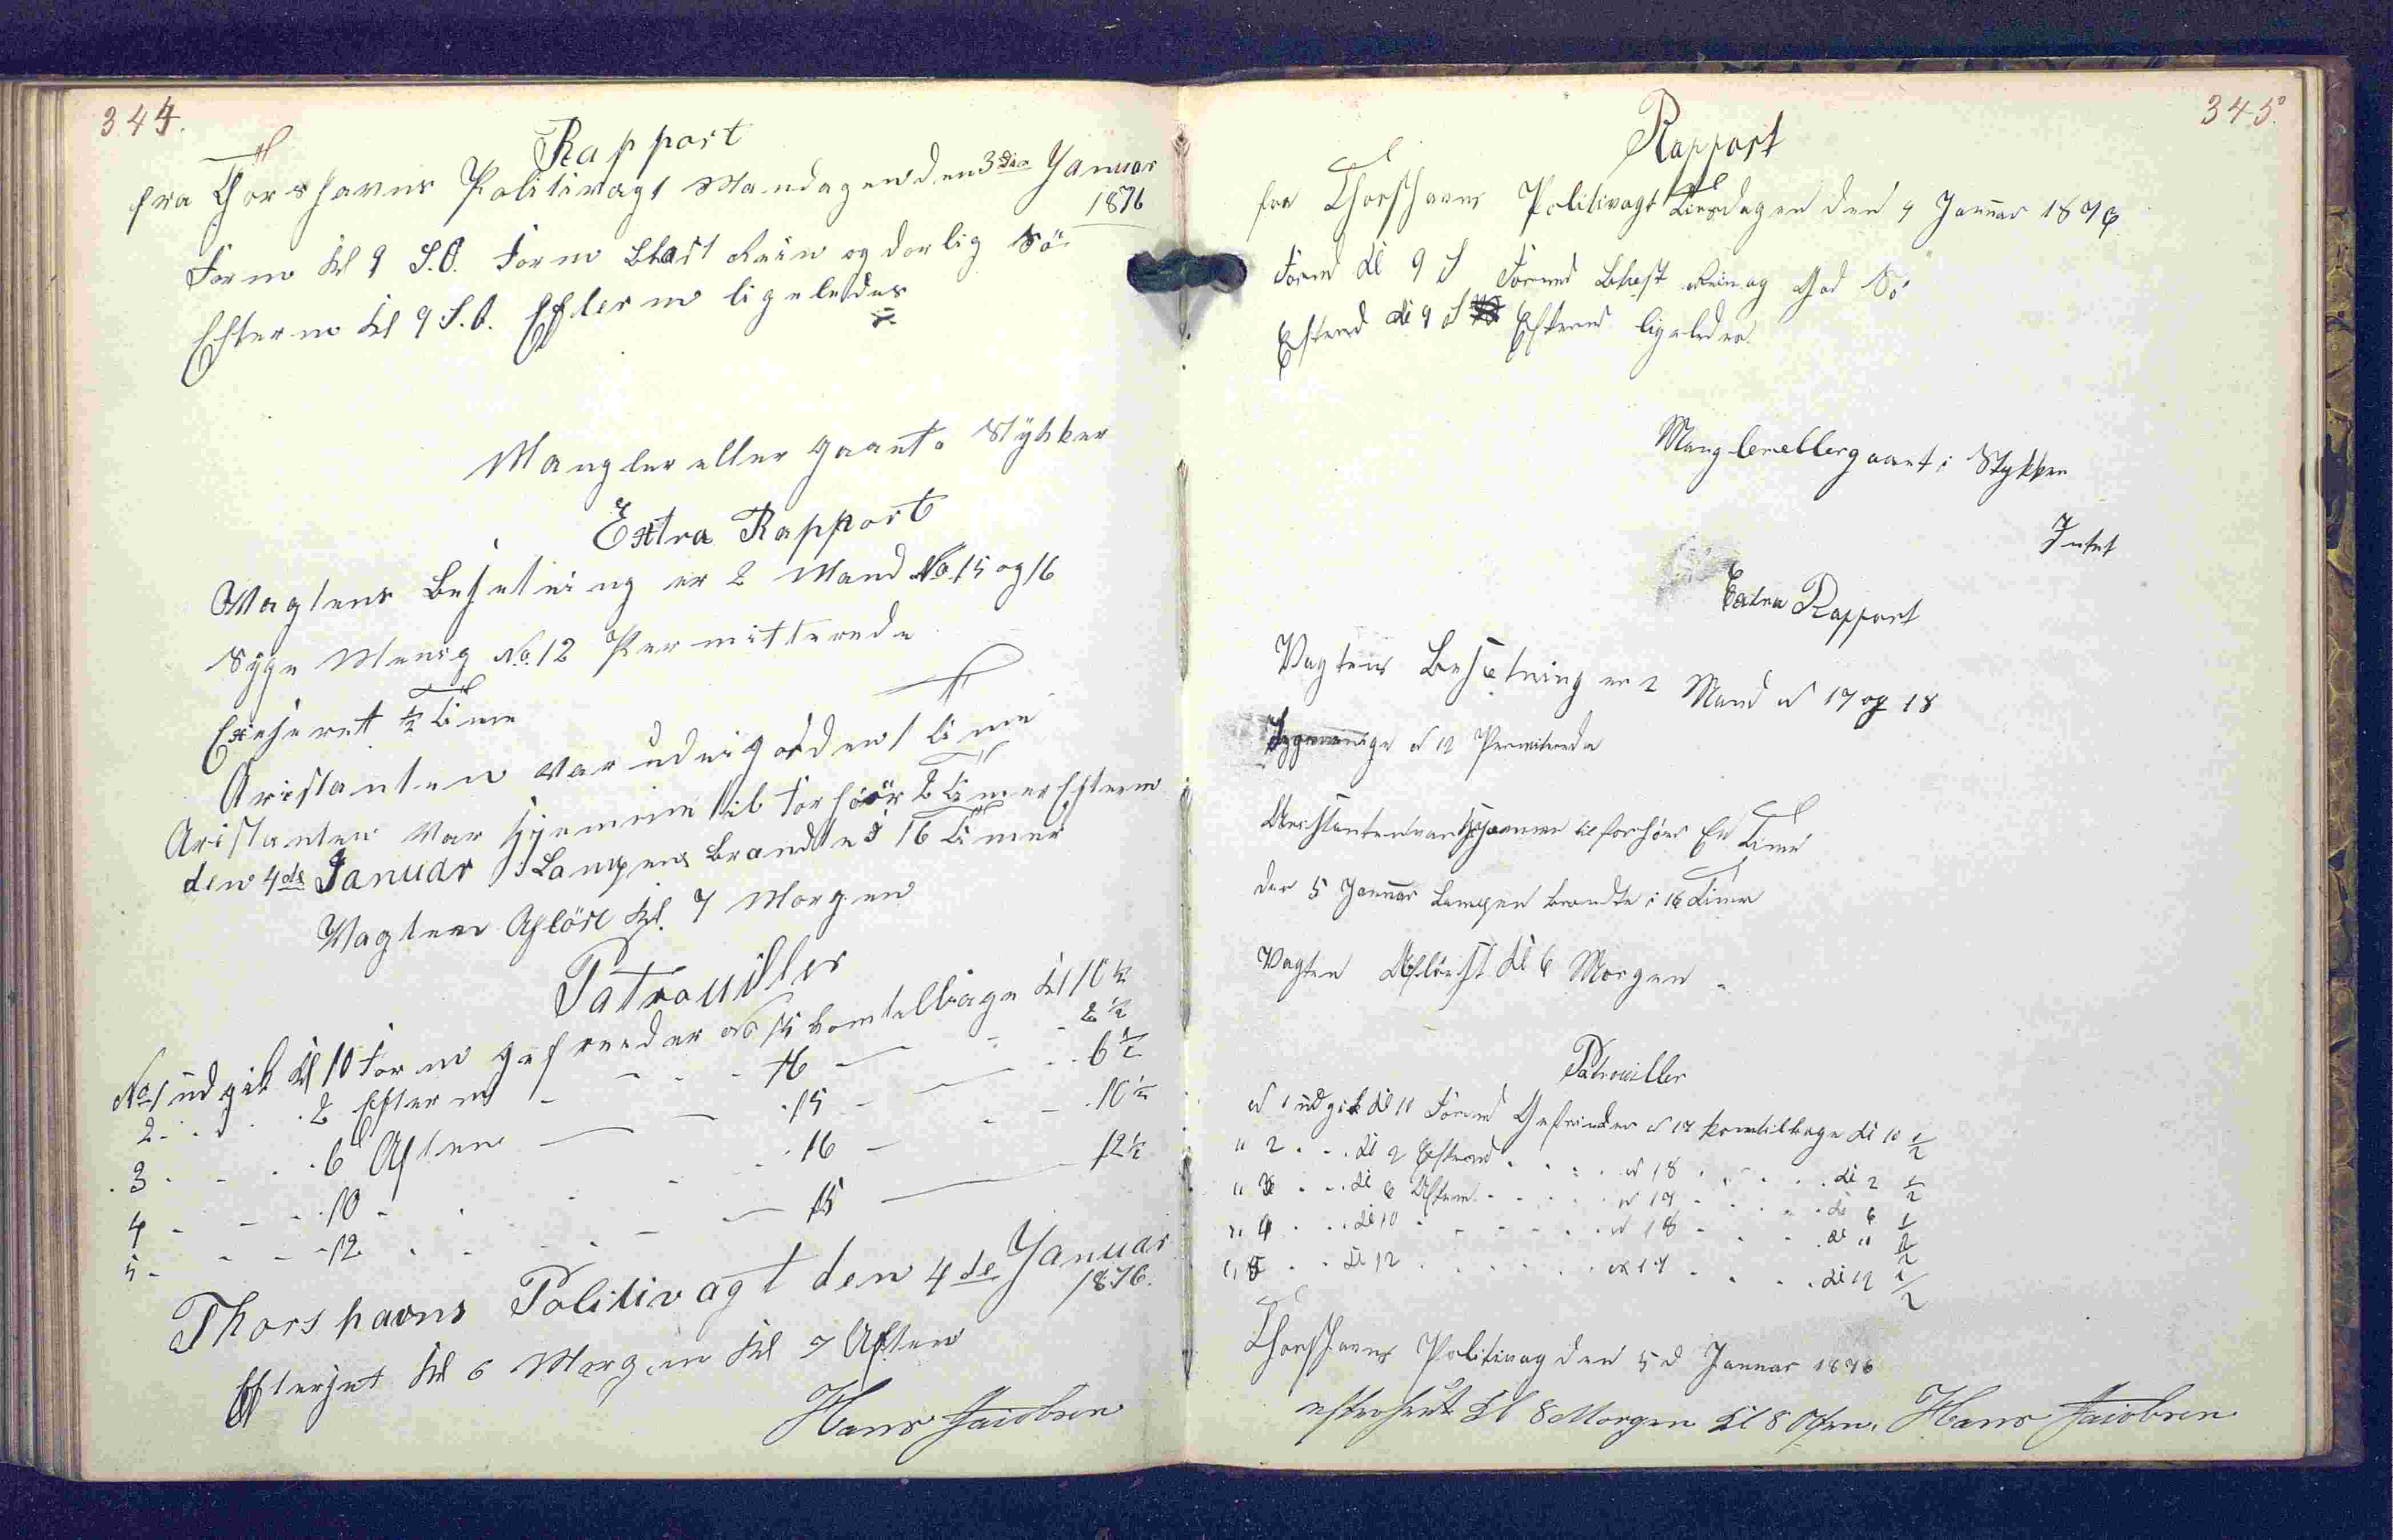 344.
Rapport
fra Thorshavns Politivagt Mandagen den 3die Januar
1876
Form Kl 9 S.O. Form Blast Rein og dorlig Sö
Efterm Kl 9 S.O. Efterm ligeledes
Mangler eller gaaet i Stykker
Extra Rapport
Vagtens Besetning er 2 Mand No 15 og 16
Syge Menig No. 12 Permitterede
Exeseret ½ Time
Aristanten var ude i gorden 1 Time
Aristanten var hjemme til forhöör 2 Timer Efterm
den 4de Januar Lampens brandte i 16 Timer
Vagten Aflöst Kl. 7 Morgen
Patrouiller
No 1 udgik Kl 10 Form gefreeder No 15 kom tilbage Kl 10 ½
2 - - - 2 Efterm - - - 16 - - 2 ½
3 - - - 6 Aften - - 15 - - 6 ½
4 - - - 10 - - - 16 - - 10 ½
5 - - - 12 - - - 15 - 12 ½
Thorshavns Politivagt den 4de Januar
1876.
Efterset Kl 6 Morgen Kl 7 Aften
Hans Jacobsen
345.
Rapport
fra Thorshavns Politivagt Tirsdagen den 4 Januar 1876
Formd Kl 9 S Formd Blast Rein og God Sö
Eftermd Kl 9 S Eftermd ligeledes
Mangler eller gaaet i Stykker
Intet
Extra Rapport
Vagtens Besetning er 2 Mand No 17 og 18
Sygemenige No 12 Permiterede
Arestanten var hjemme til forhöer En Time
den 5 Januar Lampen brandte i 16 Timer
Vagten Aflöest Kl 6 Morgen
Patrouiller
No 1 udgik Kl 10 Formd Gefreider No 17 kom tilbage Kl 10 ½
" 2 . . . Kl 2 Eftermd . . . . No 18 . . . . Kl 2 ½
" 3 . . . Kl 6 Aften . . . . No 17 . . . . Kl 6 ½
" 4 . . . Kl 10 . . . . . No 18 . . . Kl 10 ½
" 5 . . Kl 12 . . . . . No 17 . . . . Kl 12 ½
Thorshavns Politivag den 5 d Januar 1876
efterseet Kl 8 Morgen Kl 8 Aften. Hans Jacobsen